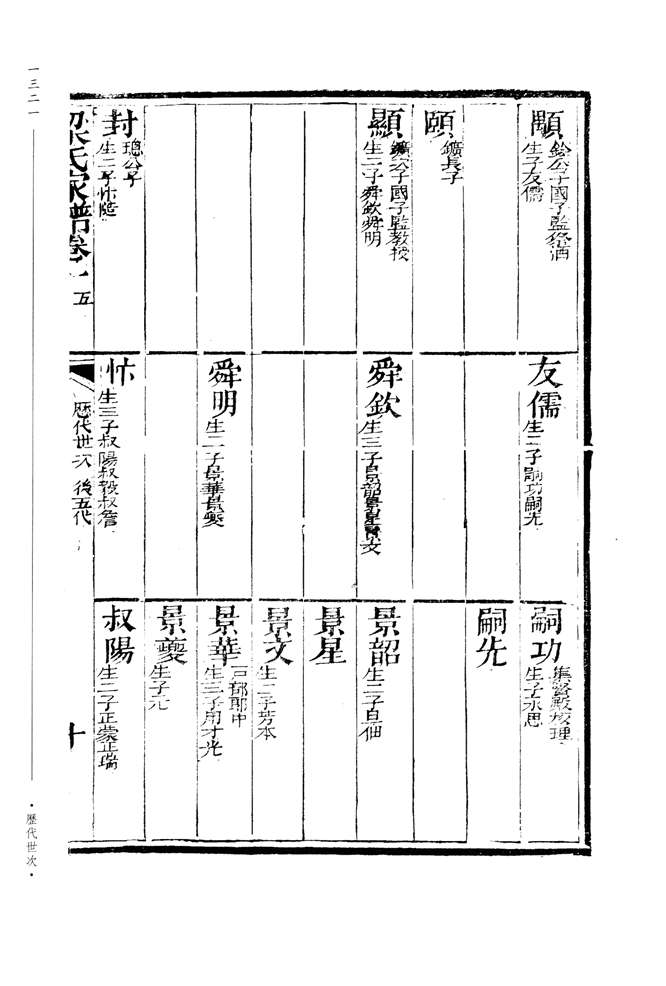 顒
鈴公子國子監祭酒
生子友儒
頤
鑛長子
顯
鑛次子國子監教授
生二子舜欽舜明
封
璁公子
生二子忭隆
友儒
生二子嗣功嗣先
舜欽
生三子景韶景星景文
舜明
生二子景華景夔
忭
生三子叔陽叔毅叔詹
嗣功
集賢殿校理
生子永思
嗣先
景韶
生二子自佃
景星
景文
生二子芳本
景華
戶部郎中
生三子用才光
景夔
生子元
叔陽
生二子正蒙正瑞
梁氏家譜卷十五
歷代世次 後五代
十
一三二一
·歷代世次·